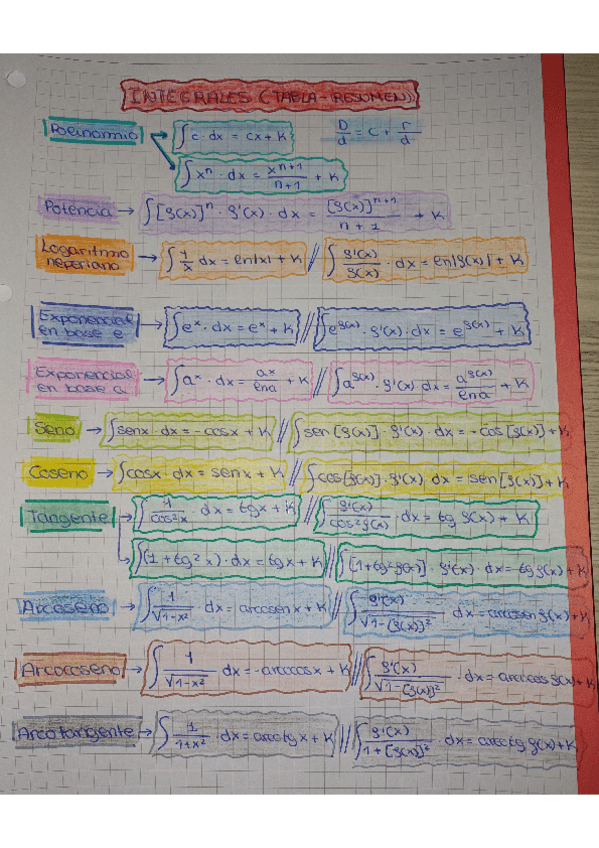 INTEGRALES (TABLA-RESUMEN)
Polinomio → ∫ c · dx = cx + K    D/d = C + r/d
∫ xⁿ · dx = xⁿ⁺¹/(n+1) + K
Potencia → ∫ [f(x)]ⁿ · f'(x) · dx = [f(x)]ⁿ⁺¹/(n+1) + K
Logaritmo neperiano → ∫ 1/x dx = ln|x| + K // ∫ f'(x)/f(x) · dx = ln|f(x)| + K
Exponencial en base e → ∫ eˣ · dx = eˣ + K // ∫ e^f(x) · f'(x) · dx = e^f(x) + K
Exponencial en base a → ∫ aˣ · dx = aˣ/lna + K // ∫ a^f(x) · f'(x) · dx = a^f(x)/lna + K
Seno → ∫ senx · dx = -cosx + K // ∫ sen [f(x)] · f'(x) · dx = -cos [f(x)] + K
Coseno → ∫ cosx · dx = senx + K // ∫ cos[f(x)] · f'(x) · dx = sen[f(x)] + K
Tangente → ∫ 1/cos²x dx = tgx + K // ∫ f'(x)/cos²f(x) · dx = tg f(x) + K
∫ (1 + tg²x) · dx = tgx + K // ∫ [1 + tg²f(x)] · f'(x) · dx = tgf(x) + K
Arcoseno → ∫ 1/√(1-x²) · dx = arcsenx + K // ∫ f'(x)/√(1-[f(x)]²) dx = arcsenf(x) + K
Arcocoseno → ∫ 1/√(1-x²) dx = -arccosx + K // ∫ f'(x)/√(1-[f(x)]²) · dx = arccosf(x) + K
Arcotangente → ∫ 1/(1+x²) · dx = arctgx + K // ∫ f'(x)/(1+[f(x)]²) dx = arctg f(x) + K